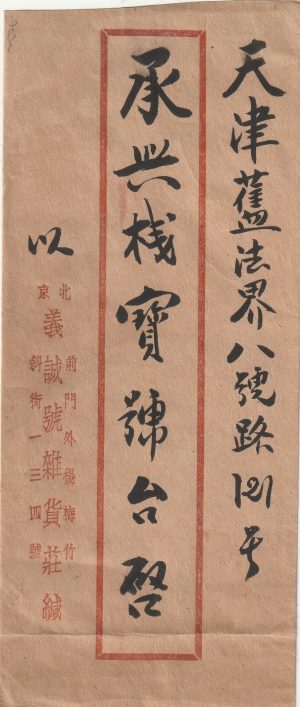 天津舊法界八號路121号
承興棧寶號台啓
以
北京
前門外楊梅竹
義誠號雜貨莊緘
斜街一三四號